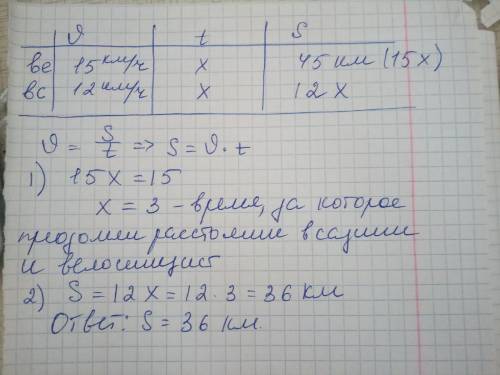 ϑ t S
ве 15 км/ч x 45 км (15x)
вс 12 км/ч x 12x
ϑ = S/t => S = ϑ · t
1) 15x = 15
x = 3 - время, за которое
преодолеи расстояние всадник
и велосипедист
2) S = 12x = 12 · 3 = 36 км
Ответ: S = 36 км.